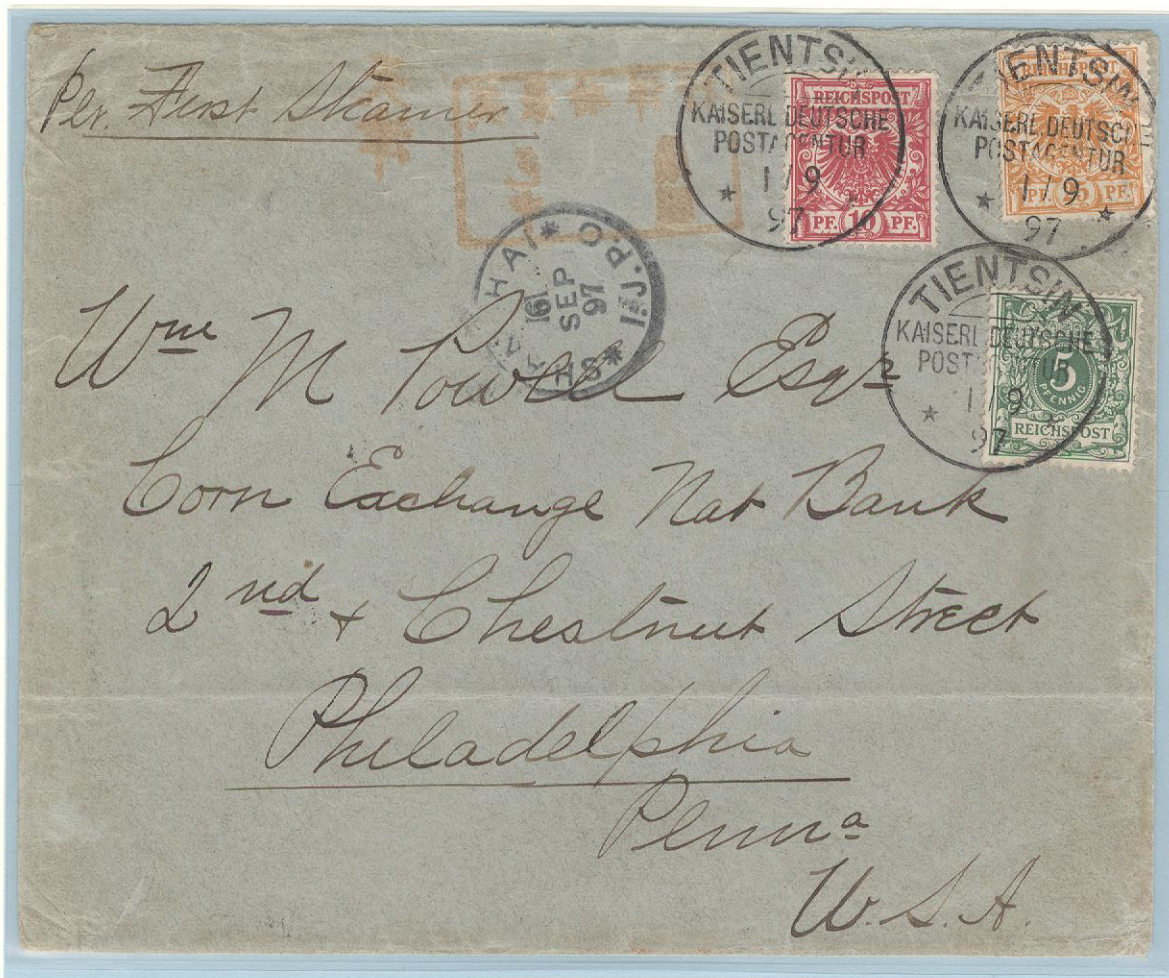 Per. First Steamer
TIENTSIN
KAISERL. DEUTSCHE
POSTAGENTUR
1/9
97
REICHSPOST
PF. 10 PF.
TIENTSIN
KAISERL. DEUTSCHE
POSTAGENTUR
1/9
97
REICHSPOST
PF. 25 PF.
SHANGHAI I.J.P.O
SEP
97
TIENTSIN
KAISERL. DEUTSCHE
POSTAGENTUR
1/9
97
5
PFENNIG
REICHSPOST
Wm M Powell Esqr
Corn Exchange Nat Bank
2nd + Chestnut Street
Philadelphia
Penna
U.S.A.